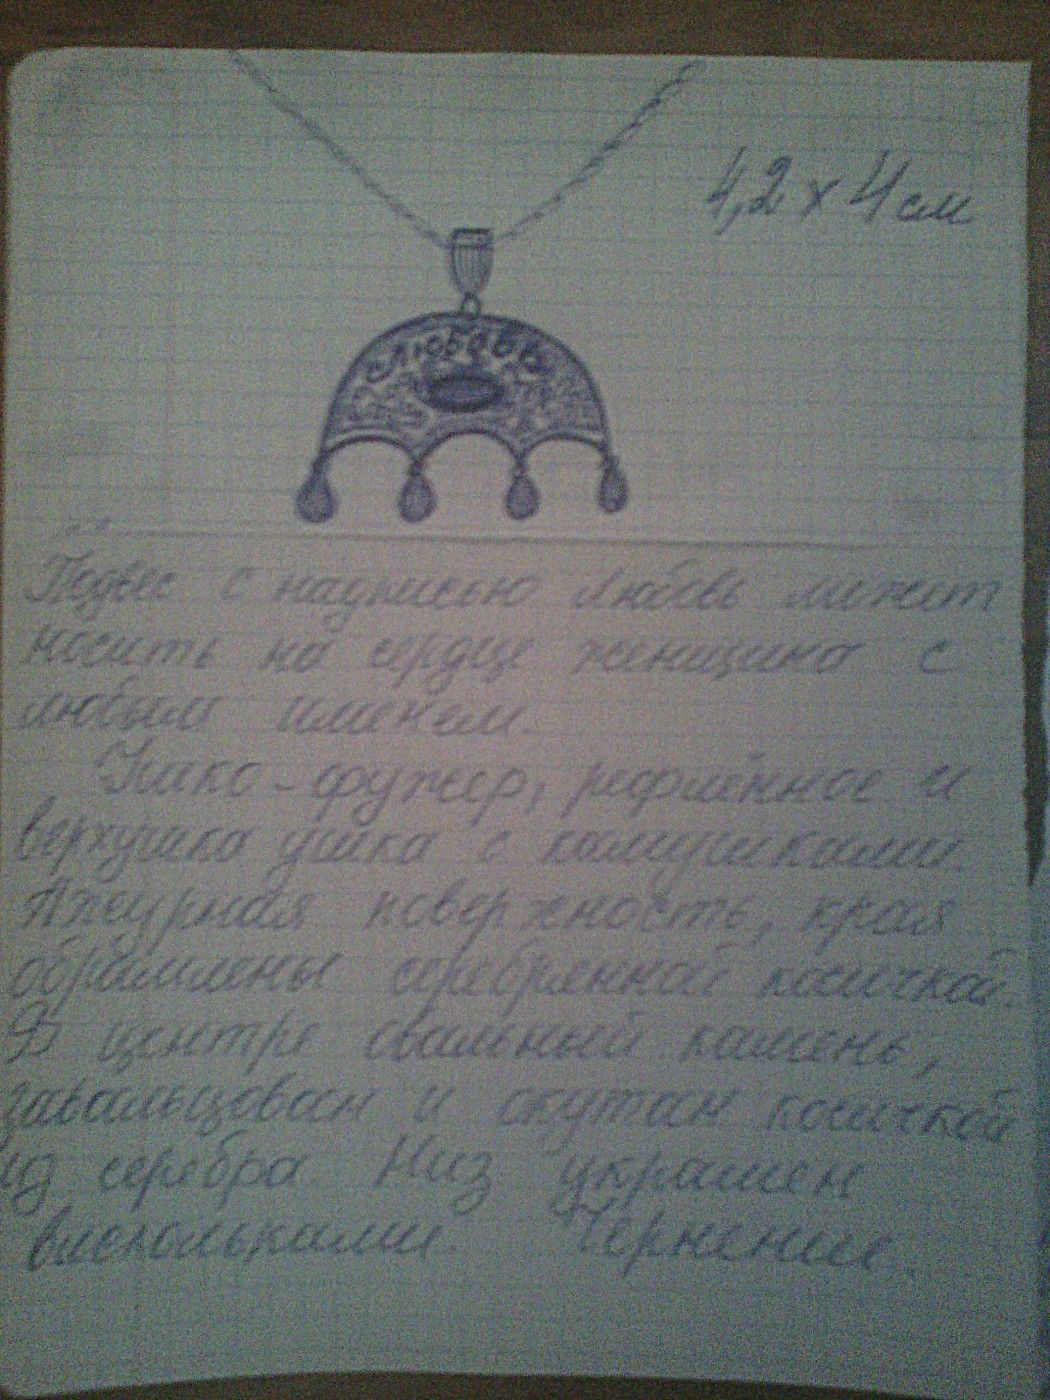 4,2 х 4 см
Любовь
Подвес с надписью Любовь может
носить на сердце женщина с
любым именем.
Ушко - фужер, рефлённое и
верхушка ушка с камушками.
Ажурная поверхность, края
обрамлены серебрянной косичкой.
В центре овальный камень,
завальцован и окутан косичкой
из серебра. Низ украшен
висюльками. Чернение.